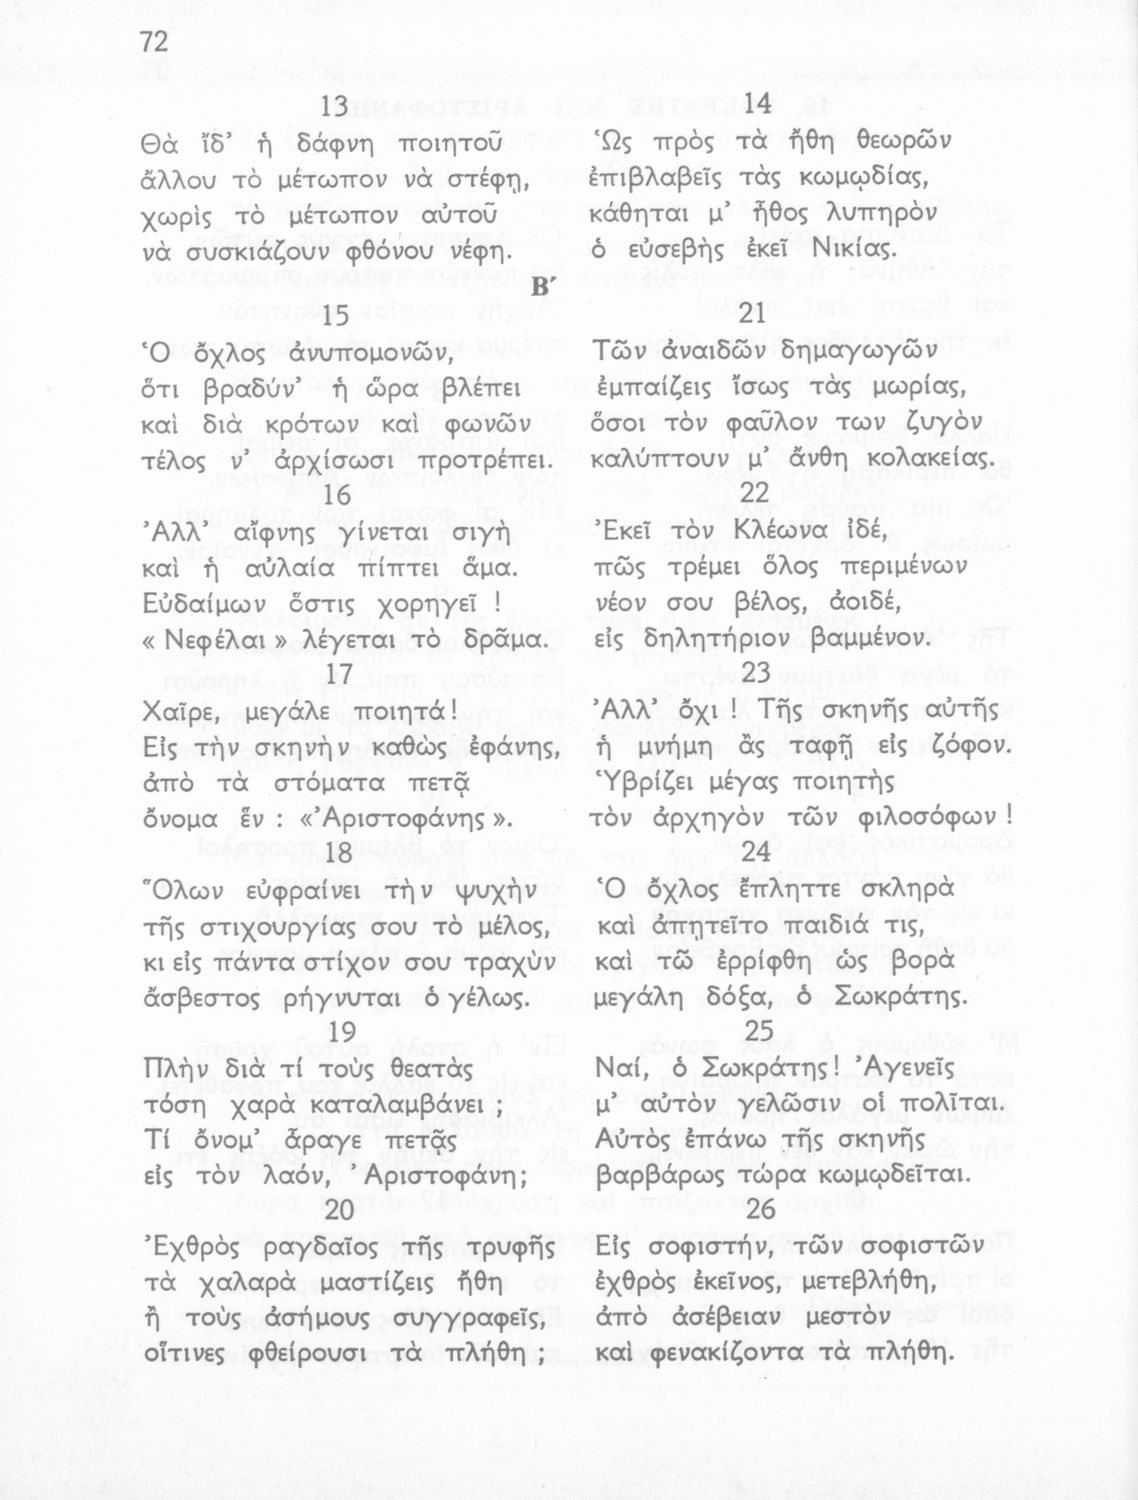 72
13
Θὰ ἴδ’ ἡ δάφνη ποιητοῦ
ἄλλου τὸ μέτωπον νὰ στέφῃ,
χωρὶς τὸ μέτωπον αὐτοῦ
νὰ συσκιάζουν φθόνου νέφη.
14
Ὡς πρὸς τὰ ἤθη θεωρῶν
ἐπιβλαβεῖς τὰς κωμῳδίας,
κάθηται μ’ ἦθος λυπηρὸν
ὁ εὐσεβὴς ἐκεῖ Νικίας.
Β΄
15
Ὁ ὄχλος ἀνυπομονῶν,
ὅτι βραδύν’ ἡ ὥρα βλέπει
καὶ διὰ κρότων καὶ φωνῶν
τέλος ν’ ἀρχίσωσι προτρέπει.
16
Ἀλλ’ αἴφνης γίνεται σιγὴ
καὶ ἡ αὐλαία πίπτει ἅμα.
Εὐδαίμων ὅστις χορηγεῖ !
« Νεφέλαι » λέγεται τὸ δρᾶμα.
17
Χαῖρε, μεγάλε ποιητά!
Εἰς τὴν σκηνὴν καθὼς ἐφάνης,
ἀπὸ τὰ στόματα πετᾷ
ὄνομα ἕν : «Ἀριστοφάνης ».
18
Ὅλων εὐφραίνει τὴν ψυχὴν
τῆς στιχουργίας σου τὸ μέλος,
κι εἰς πάντα στίχον σου τραχὺν
ἄσβεστος ρήγνυται ὁ γέλως.
19
Πλὴν διὰ τί τοὺς θεατὰς
τόση χαρὰ καταλαμβάνει ;
Τί ὄνομ’ ἆραγε πετᾷς
εἰς τὸν λαόν, Ἀριστοφάνη;
20
Ἐχθρὸς ραγδαῖος τῆς τρυφῆς
τὰ χαλαρὰ μαστίζεις ἤθη
ἢ τοὺς ἀσήμους συγγραφεῖς,
οἵτινες φθείρουσι τὰ πλήθη ;
21
Τῶν ἀναιδῶν δημαγωγῶν
ἐμπαίζεις ἴσως τὰς μωρίας,
ὅσοι τὸν φαῦλον των ζυγὸν
καλύπτουν μ’ ἄνθη κολακείας.
22
Ἐκεῖ τὸν Κλέωνα ἰδέ,
πῶς τρέμει ὅλος περιμένων
νέον σου βέλος, ἀοιδέ,
εἰς δηλητήριον βαμμένον.
23
Ἀλλ’ ὄχι ! Τῆς σκηνῆς αὐτῆς
ἡ μνήμη ἂς ταφῇ εἰς ζόφον.
Ὑβρίζει μέγας ποιητὴς
τὸν ἀρχηγὸν τῶν φιλοσόφων !
24
Ὁ ὄχλος ἔπληττε σκληρὰ
καὶ ἀπῃτεῖτο παιδιά τις,
καὶ τῷ ἐρρίφθη ὡς βορὰ
μεγάλη δόξα, ὁ Σωκράτης.
25
Ναί, ὁ Σωκράτης! Ἀγενεῖς
μ’ αὐτὸν γελῶσιν οἱ πολῖται.
Αὐτὸς ἐπάνω τῆς σκηνῆς
βαρβάρως τώρα κωμῳδεῖται.
26
Εἰς σοφιστήν, τῶν σοφιστῶν
ἐχθρὸς ἐκεῖνος, μετεβλήθη,
ἀπὸ ἀσέβειαν μεστὸν
καὶ φενακίζοντα τὰ πλήθη.